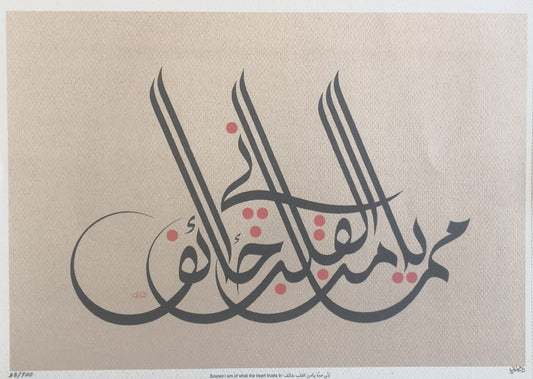 إنّي ممّا يأمن القلب خائف
Scared I am of what the heart trusts in إنّي ممّا يأمن القلب خائف
58/700